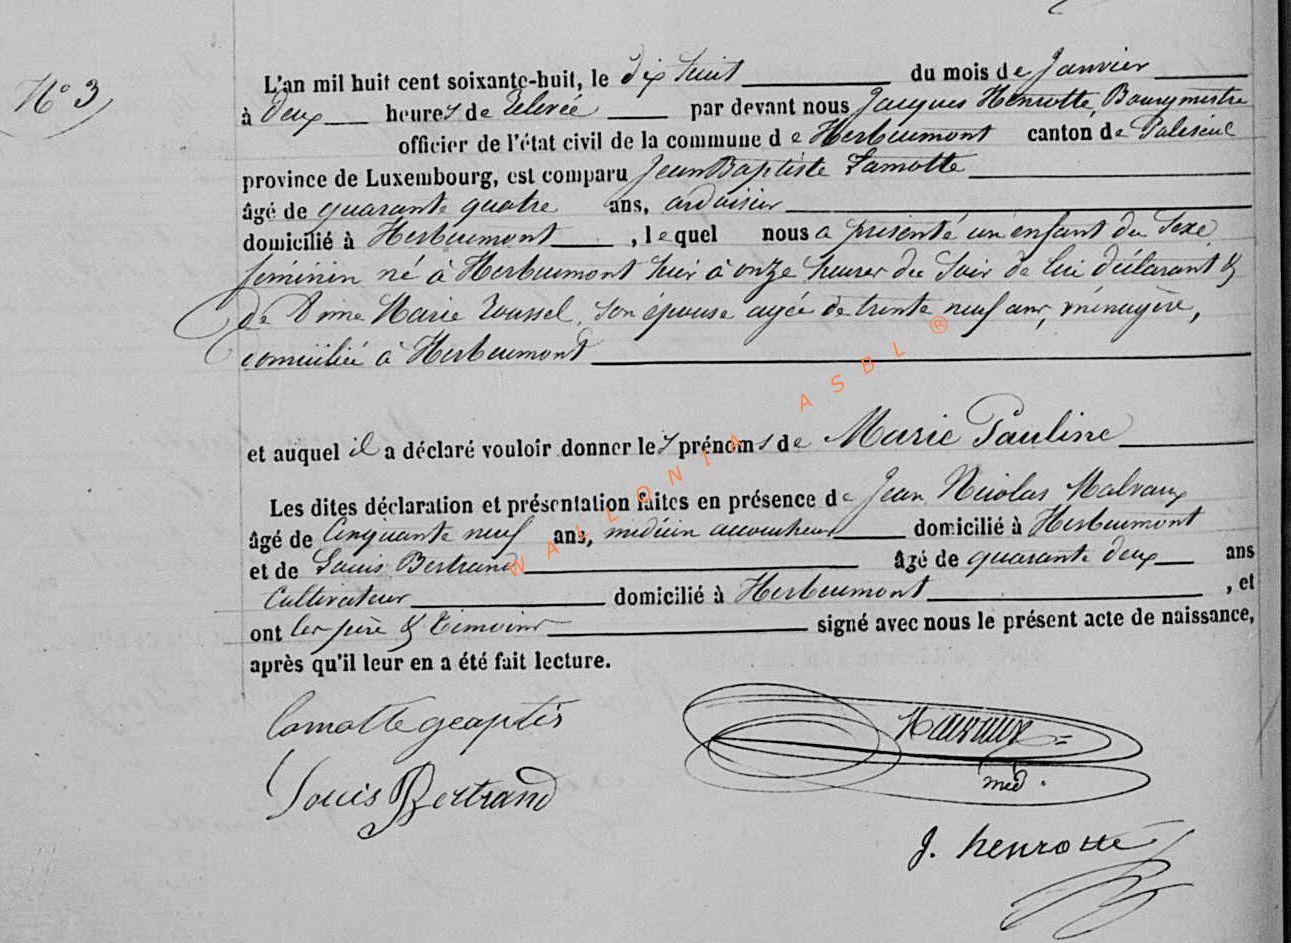 N° 3
L'an mil huit cent soixante-huit, le dix huit du mois de Janvier
à deux heures de relevée par devant nous Jacques Henrotte, Bourgmestre
officier de l'état civil de la commune de Herbeumont canton de Paliseul
province de Luxembourg, est comparu Jean Baptiste Lamotte
âgé de quarante quatre ans, ardoisier
domicilié à Herbeumont, lequel nous a présenté un enfant du Sexe
féminin né à Herbeumont hier à onze heures du Soir de lui déclarant &
de Anne Marie Roussel, son épouse agée de trente neuf ans, ménagère,
domiciliée à Herbeumont
et auquel il a déclaré vouloir donner les prénoms de Marie Pauline
Les dites déclaration et présentation faites en présence de Jean Nicolas Malvaux
âgé de Cinquante neuf ans, médecin accoucheur domicilié à Herbeumont
et de Louis Bertrand âgé de quarante deux ans
Cultivateur domicilié à Herbeumont, et
ont les père & témoins signé avec nous le présent acte de naissance,
après qu'il leur en a été fait lecture.
Lamotte
Louis Bertrand
méd.
J. henrotte
WALLONIA ASBL ®